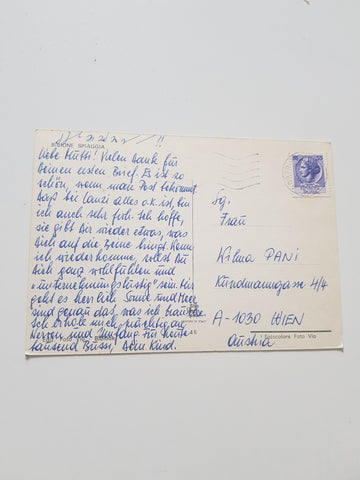 BIBIONE SPIAGGIA
Liebe Mutti! Vielen Dank für
Deinen ersten Brief. Es ist so
schön, wenn man Post bekommt.
Daß bei Lanzi alles o.k. ist, bin
ich auch sehr froh. Ich hoffe,
sie gibt Dir wieder etwas, was
Dich auf die Beine bringt. Wenn
ich wieder komme, sollst Du
Dich ganz wohlfühlen und
"unternehmungslustig" sein. Mir
geht es herrlich. Sonne und Meer
sind genau das, was ich brauche.
Ich erhole mich prächtig an
Nerven und Umfang. Für heute
tausend Bussi, Dein Kind.
Frau
Wilma PANI
Kundmanngasse 4/4
A-1030 WIEN
Austria
Fotocolore Foto Vio